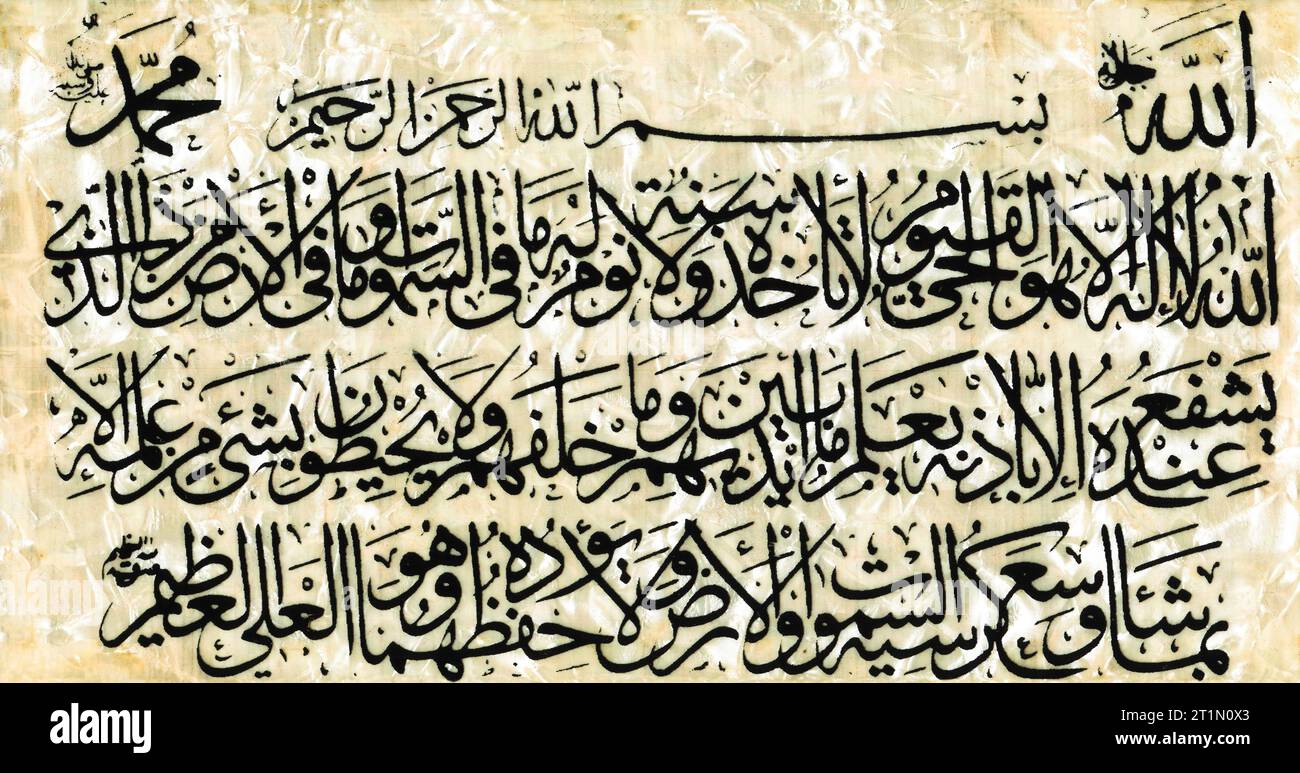 الله جل جلاله بسم الله الرحمن الرحيم محمد صلى الله عليه وسلم
الله لا إله إلا هو الحي القيوم لا تأخذه سنة ولا نوم له ما في السموات وما في الأرض من ذا الذي
يشفع عنده إلا بإذنه يعلم ما بين أيديهم وما خلفهم ولا يحيطون بشيء من علمه إلا
بما شاء وسع كرسيه السموات والأرض ولا يؤده حفظهما وهو العلي العظيم
alamy
alamy
Image ID: 2T1N0X3
www.alamy.com